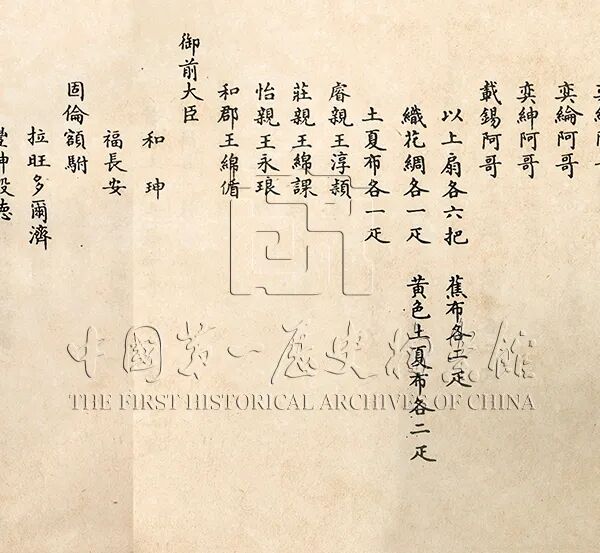 奕綸阿哥
奕紳阿哥
載錫阿哥
以上扇各六把 蕉布各二疋
織花綢各一疋 黃色土夏布各二疋
土夏布各一疋
睿親王淳穎
莊親王綿課
怡親王永琅
和郡王綿循
御前大臣
和珅
福長安
固倫額駙
拉旺多爾濟
豐紳殷德
中國第一歷史檔案館
THE FIRST HISTORICAL ARCHIVES OF CHINA